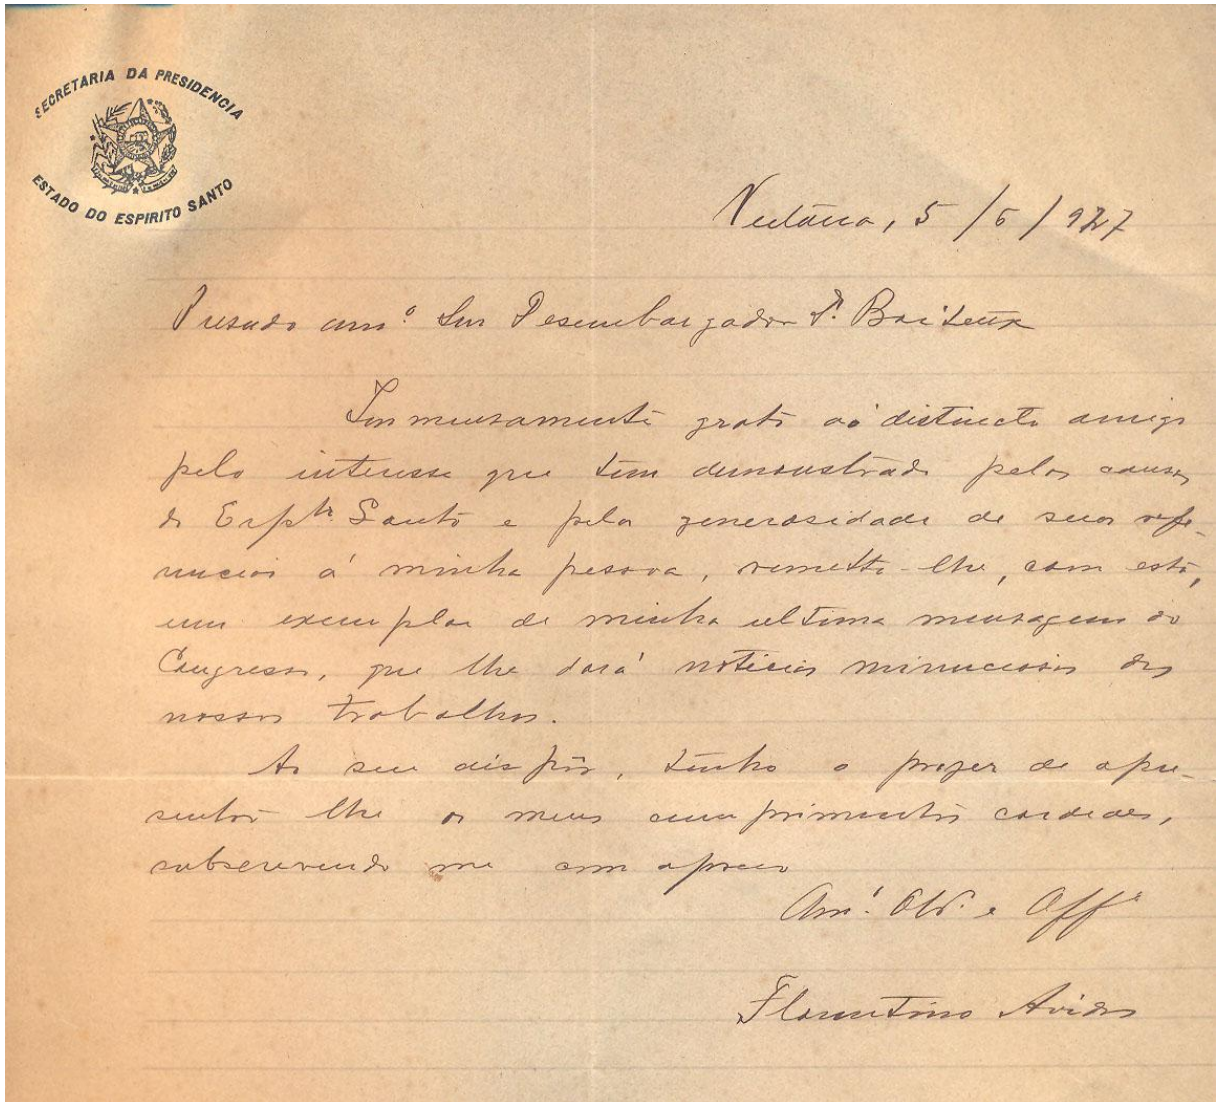 SECRETARIA DA PRESIDENCIA
ESTADO DO ESPIRITO SANTO
Victória, 5/6/927
Presado amº Snr Desembargador Dr. Boiteux
Immensamente grato ao distincto amigo
pelo interesse que tem demonstrado pelas causas
do Espto Santo e pela generosidade de suas refe-
rencias á minha pessoa, remetto-lhe, com esta,
um exemplar de minha ultima mensagem ao
Congresso, que lhe dará noticias minuciosas dos
nossos trabalhos.
Ao seu dispôr, tenho o prazer de apre-
sentar lhe os meus cumprimentos cordeaes,
subscrevendo me com apreço
Amº. Obº. e Offº
Florentino Avidos